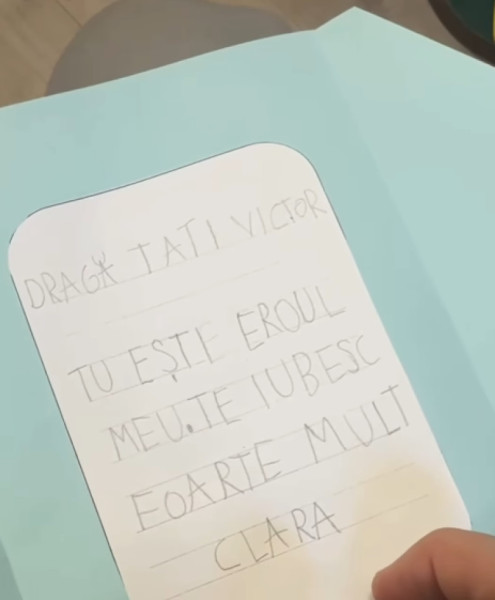 DRAGĂ TATI VICTOR
TU EȘTE EROUL
MEU.TE IUBESC
FOARTE MULT
CLARA